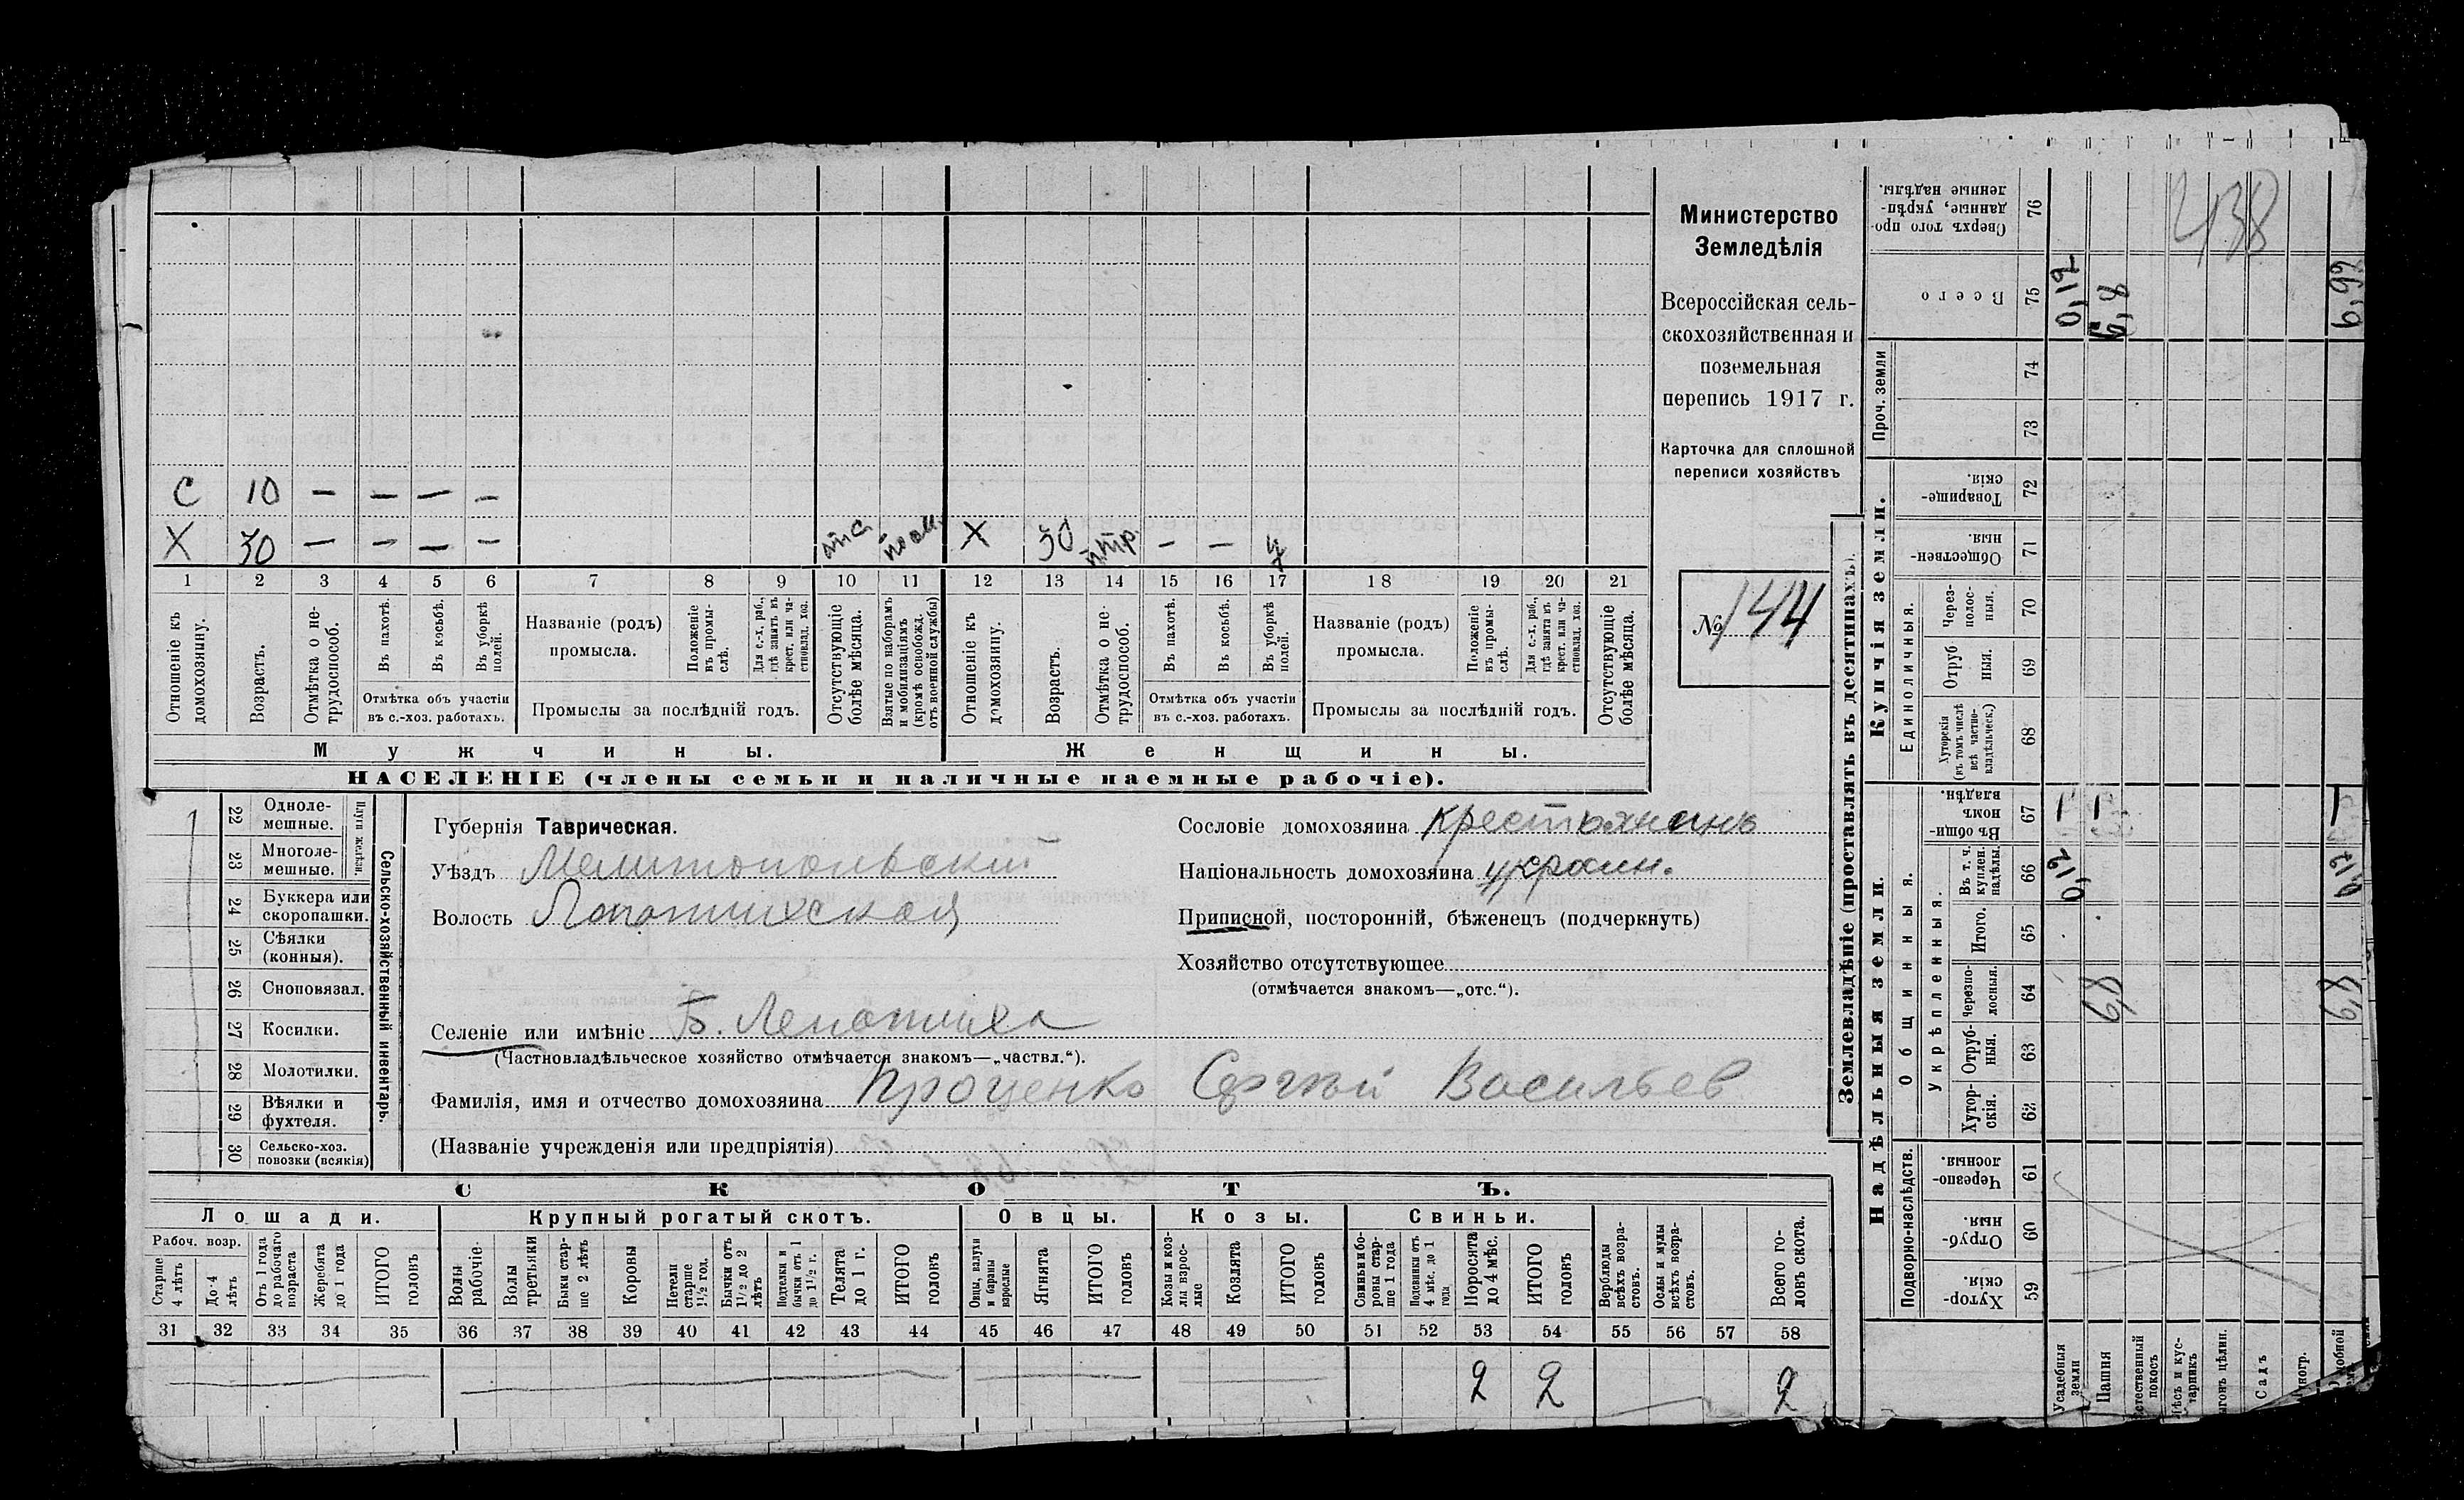 Министерство
Земледѣлія
Всероссійская сель-
скохозяйственная и
поземельная
перепись 1917 г.
Карточка для сплошной
переписи хозяйствъ
№ 144
438
С 10 — — — —
Х 30 — — — — Х 30 — —
1 2 3 4 5 6 7 8 9 10 11 12 13 14 15 16 17 18 19 20 21
Отношеніе къ домохозяину.
Возрастъ.
Отмѣтка о не-трудоспособ.
Въ пахотѣ.
Въ косьбѣ.
Въ уборкѣ полей.
Отмѣтка объ участіи
въ с.-хоз. работахъ.
Названіе (родъ)
промысла.
Положеніе въ промы-слѣ.
Для с.-х. раб., гдѣ занятъ въ крест. или ча-стновлад. хоз.
Промыслы за послѣдній годъ.
Отсутствующіе болѣе мѣсяца.
Взятые по наборамъ и мобилизаціямъ (кромѣ освобожд. отъ военной службы)
Отношеніе къ домохозяину.
Возрастъ.
Отмѣтка о не-трудоспособ.
Въ пахотѣ.
Въ косьбѣ.
Въ уборкѣ полей.
Отмѣтка объ участіи
въ с.-хоз. работахъ.
Названіе (родъ)
промысла.
Положеніе въ промы-слѣ.
Для с.-х. раб., гдѣ занята въ крест. или ча-стновлад. хоз.
Промыслы за послѣдній годъ.
Отсутствующіе болѣе мѣсяца.
Мужчины. Женщины.
НАСЕЛЕНІЕ (члены семьи и наличные наемные рабочіе).
22 Одноле-мешные.
23 Многоле-мешные.
Плуги желѣзн.
24 Буккера или скоропашки.
25 Сѣялки (конныя).
26 Сноповязал.
27 Косилки.
28 Молотилки.
29 Вѣялки и фухтеля.
30 Сельско-хоз. повозки (всякія)
Сельско-хозяйственный инвентарь.
Губернія Таврическая.
Уѣздъ Мелитопольский
Волость Лопатихская
Селеніе или имѣніе Б. Лепатиха
(Частновладѣльческое хозяйство отмѣчается знакомъ—„частвл.“).
Фамилія, имя и отчество домохозяина Проценко Сергѣй Васильев
(Названіе учрежденія или предпріятія)
Сословіе домохозяина крестьянинъ
Національность домохозяина украин.
Приписной, посторонній, бѣженецъ (подчеркнуть)
Хозяйство отсутствующее
(отмѣчается знакомъ—„отс.“).
СКОТЪ.
Лошади. Крупный рогатый скотъ. Овцы. Козы. Свиньи.
Рабоч. возр.
Старше 4 лѣтъ
До 4 лѣтъ
Отъ 1 года до рабочаго возраста
Жеребята до 1 года
ИТОГО головъ
Волы рабочіе
Волы третьяки
Быки стар-ше 2 лѣтъ
Коровы
Нетели старше 1½ год.
Бычки отъ 1½ до 2 лѣтъ
Подтелки и бычки отъ 1 до 1½ г.
Телята до 1 г.
ИТОГО головъ
Овцы, валухи и бараны взрослые
Ягнята
ИТОГО головъ
Козы и коз-лы взрос-лые
Козлята
ИТОГО головъ
Свиньи и бо-ровы стар-ше 1 года
Подсвинки отъ 4 мѣс. до 1 года
Поросята до 4 мѣс.
ИТОГО головъ
Верблюды всѣхъ возра-стовъ.
Ослы и мулы всѣхъ возра-стовъ.
Всего го-ловъ скота.
31 32 33 34 35 36 37 38 39 40 41 42 43 44 45 46 47 48 49 50 51 52 53 54 55 56 57 58
2 2 2
Землевладѣніе (проставлять въ десятинахъ).
Надѣльныя земли. Купчія земли. Проч. земли
Подворно-наслѣдств.
Общинныя.
Укрѣпленныя.
Единоличныя.
Хутор-скія. 59
Отруб-ныя. 60
Черезпо-лосныя. 61
Хутор-скія. 62
Отруб-ныя. 63
Черезпо-лосныя. 64
Итого. 65
Въ т. ч. куплен. надѣлы. 66
Въ общи-номъ владѣн. 67
Хуторскія (въ томъ числѣ всѣ частно-владѣльческ.) 68
Отруб ныя. 69
Через-полос-ныя. 70
Обществен-ныя. 71
Товарище-скія. 72
73
74
Всего 75
Сверхъ того про-данные, укрѣп-ленные надѣлы. 76
Усадебныя земли 0,12 0,12
Пашня 6,8
Лѣсъ и кус-тарникъ
Садъ